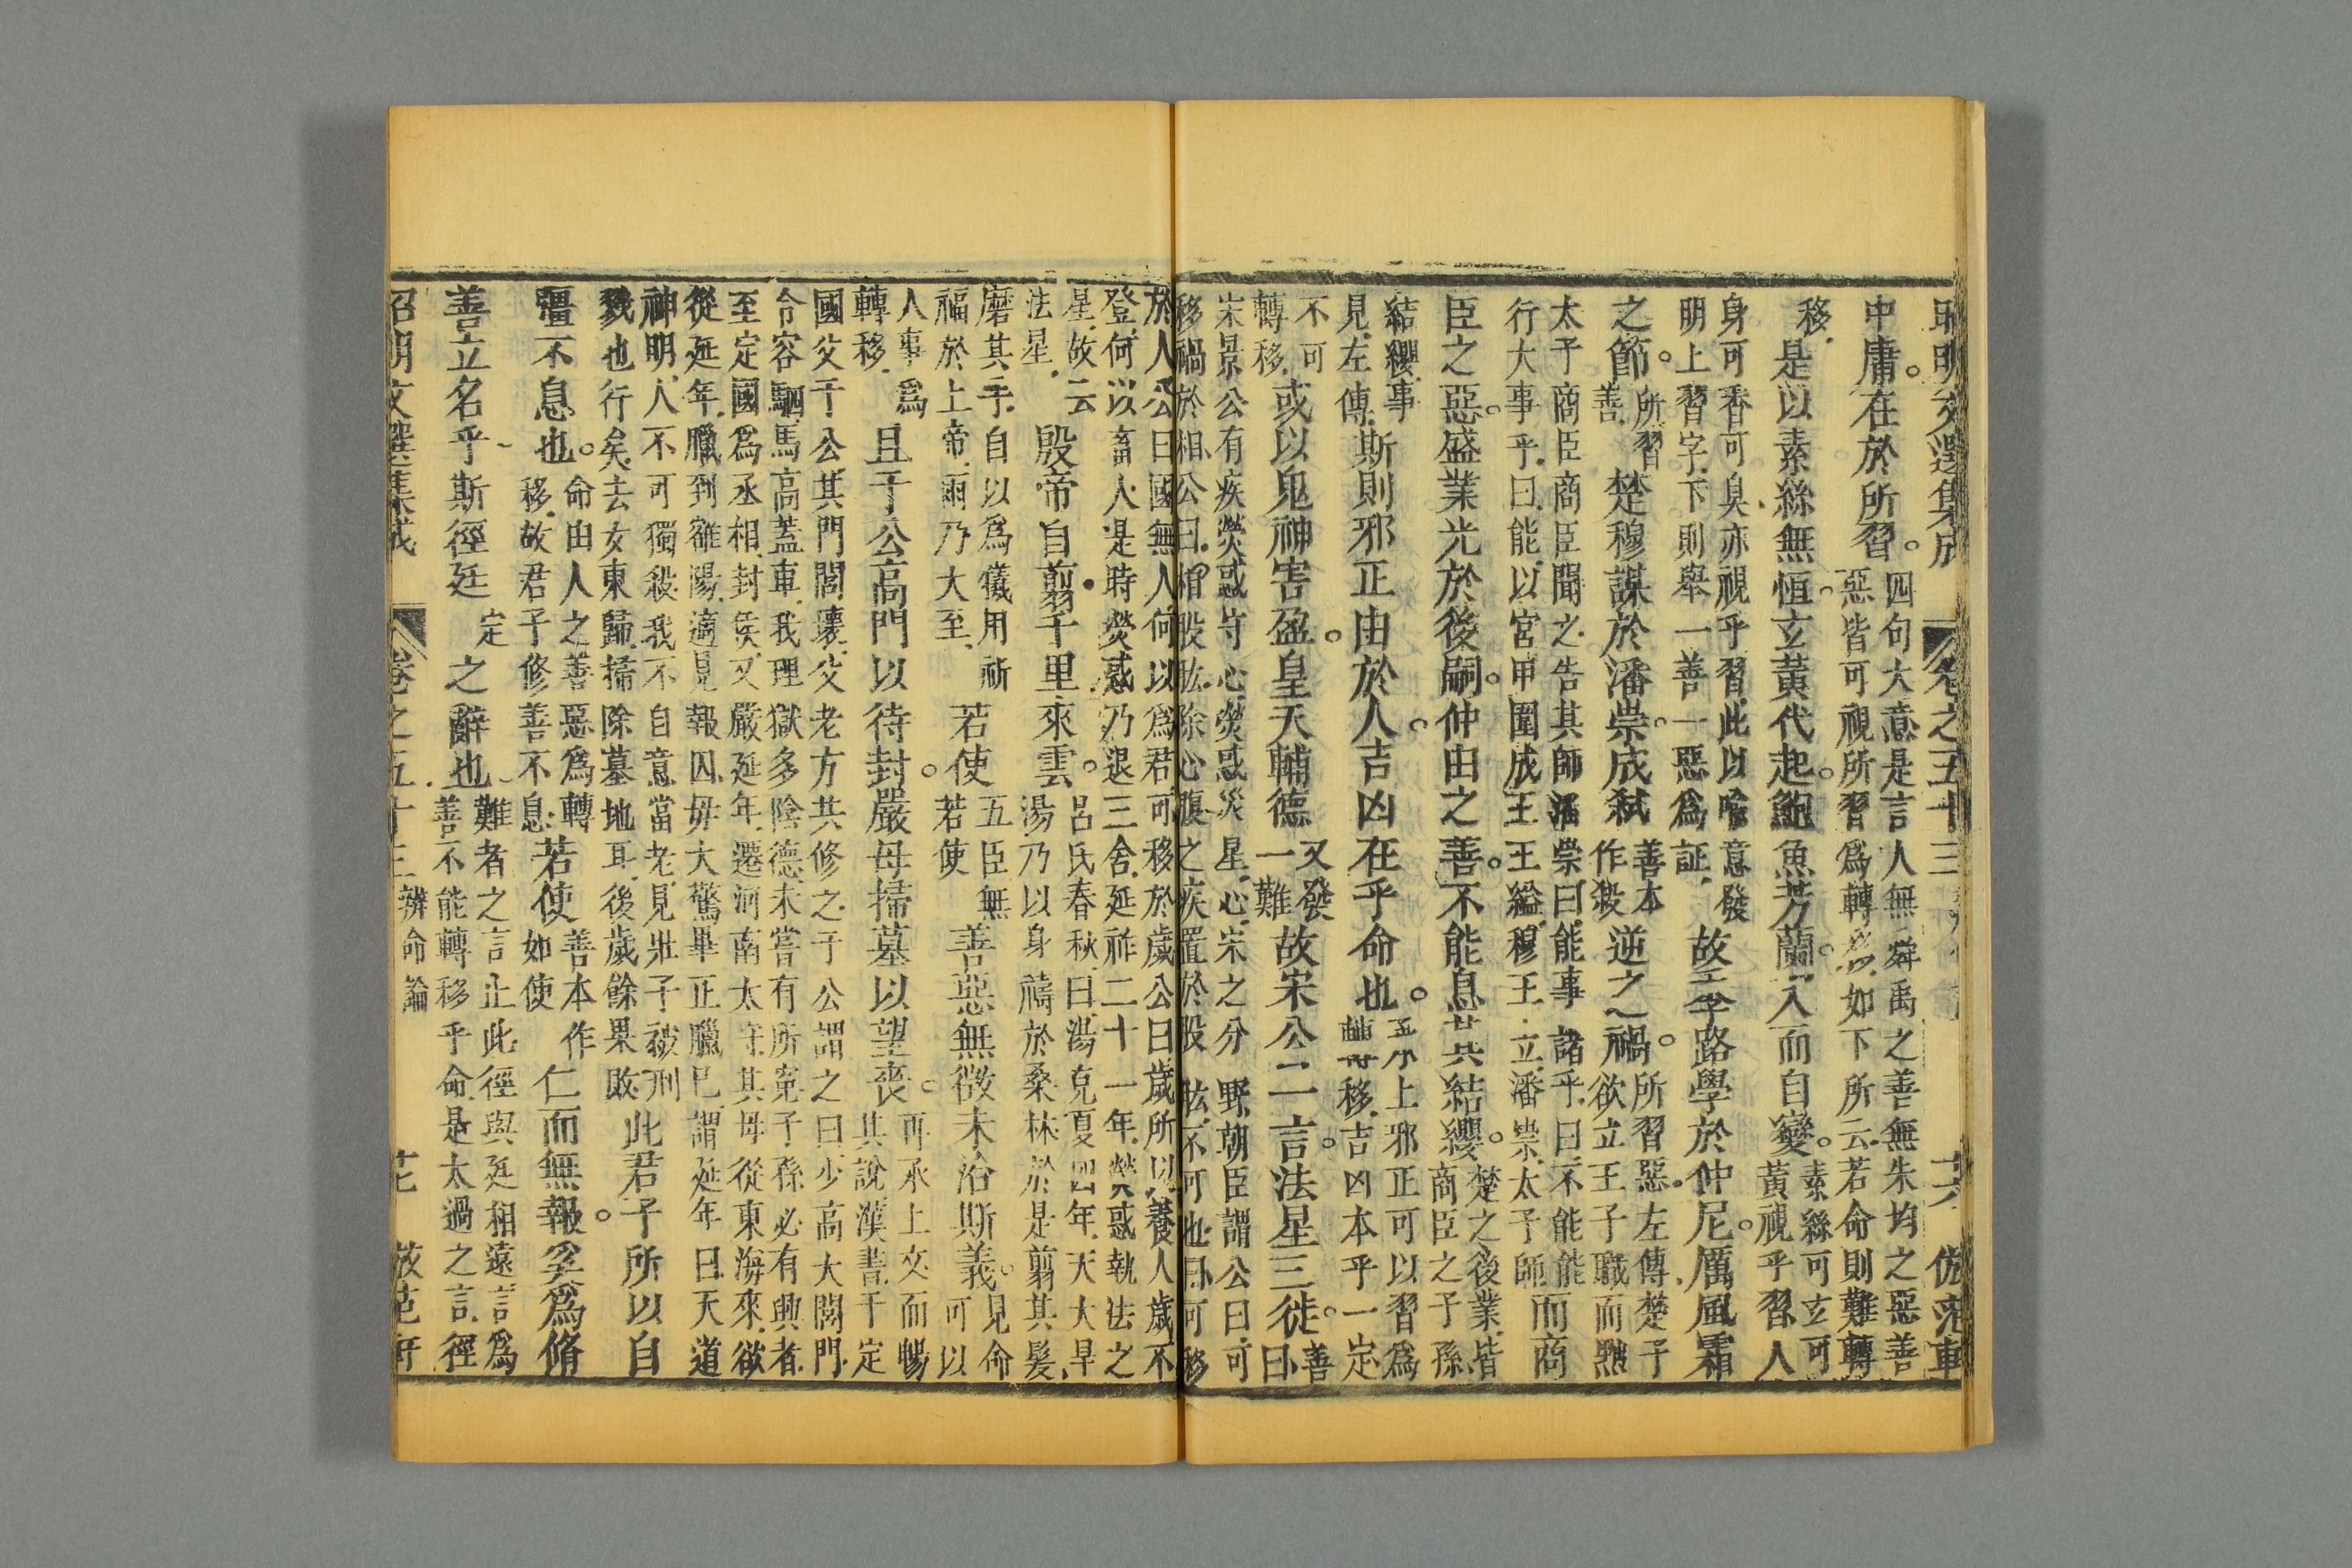 昭明文選集成 卷之五十三 十六 倣范軒
中庸在於所習四句大意是言人無舜禹之善無朱均之惡善
惡皆可視所習爲轉移如下所云若命則難轉
移是以素絲無恒玄黃代起鮑魚芳蘭入而自變素絲可玄可
黃視乎習人
身可香可臭亦視乎習此以喻意發
明上習字下則舉一善一惡爲証故季路學於仲尼厲風霜
之節所習
善楚穆謀於潘崇成弒善本
作殺逆之禍所習惡左傳楚子
欲立王子職而黜
太子商臣商臣聞之告其師潘崇曰能事諸乎曰不能能
行大事乎曰能以宮甲圍成王王縊穆王立潘崇太子師而商
臣之惡盛業光於後嗣仲由之善不能息其結纓楚之後業皆
商臣之子孫
結纓事
見左傳斯則邪正由於人吉凶在乎命也上邪正可以習爲
移吉凶本乎一定
不可
轉移或以鬼神害盈皇天輔德又發
一難故宋公一言法星三徙善
曰
宋景公有疾熒惑守心熒惑災星心宋之分野朝臣謂公曰可
移禍於相公曰相股肱除心腹之疾置於股肱不可也曰可移
於人公曰國無人何以爲君可移於歲公曰歲所以養人歲不
登何以畜人是時熒惑乃退三舍延祚二十一年熒惑執法之
星故云
法星殷帝自翦千里來雲呂氏春秋曰湯克夏四年天大旱
湯乃以身禱於桑林於是翦其髮
磨其手自以爲犧用祈
福於上帝雨乃大至若使五臣無
若使善惡無徵未洽斯義見命
可以
人事爲
轉移且于公高門以待封嚴母掃墓以望喪再承上文而暢
其說漢書于定
國父于公其門閭壞父老方共修之于公謂之曰少高大閭門
令容駟馬高蓋車我理獄多陰德未嘗有所冤子孫必有興者
至定國爲丞相封侯又嚴延年遷河南太守其母從東海來欲
從延年臘到雒陽適見報囚毋大驚畢正臘巳謂延年曰天道
神明人不可獨殺我不自意當老見壯子被刑
戮也行矣去女東歸掃除墓地耳後歲餘果敗此君子所以自
彊不息也命由人之善惡爲轉
移故君子修善不息若使善本作
如使仁而無報奚爲脩
善立名乎斯徑廷定之辭也難者之言止此徑與廷相遠言爲
善不能轉移乎命是太過之言徑
昭明文選集成 卷之五十三 辨命論 倣范軒